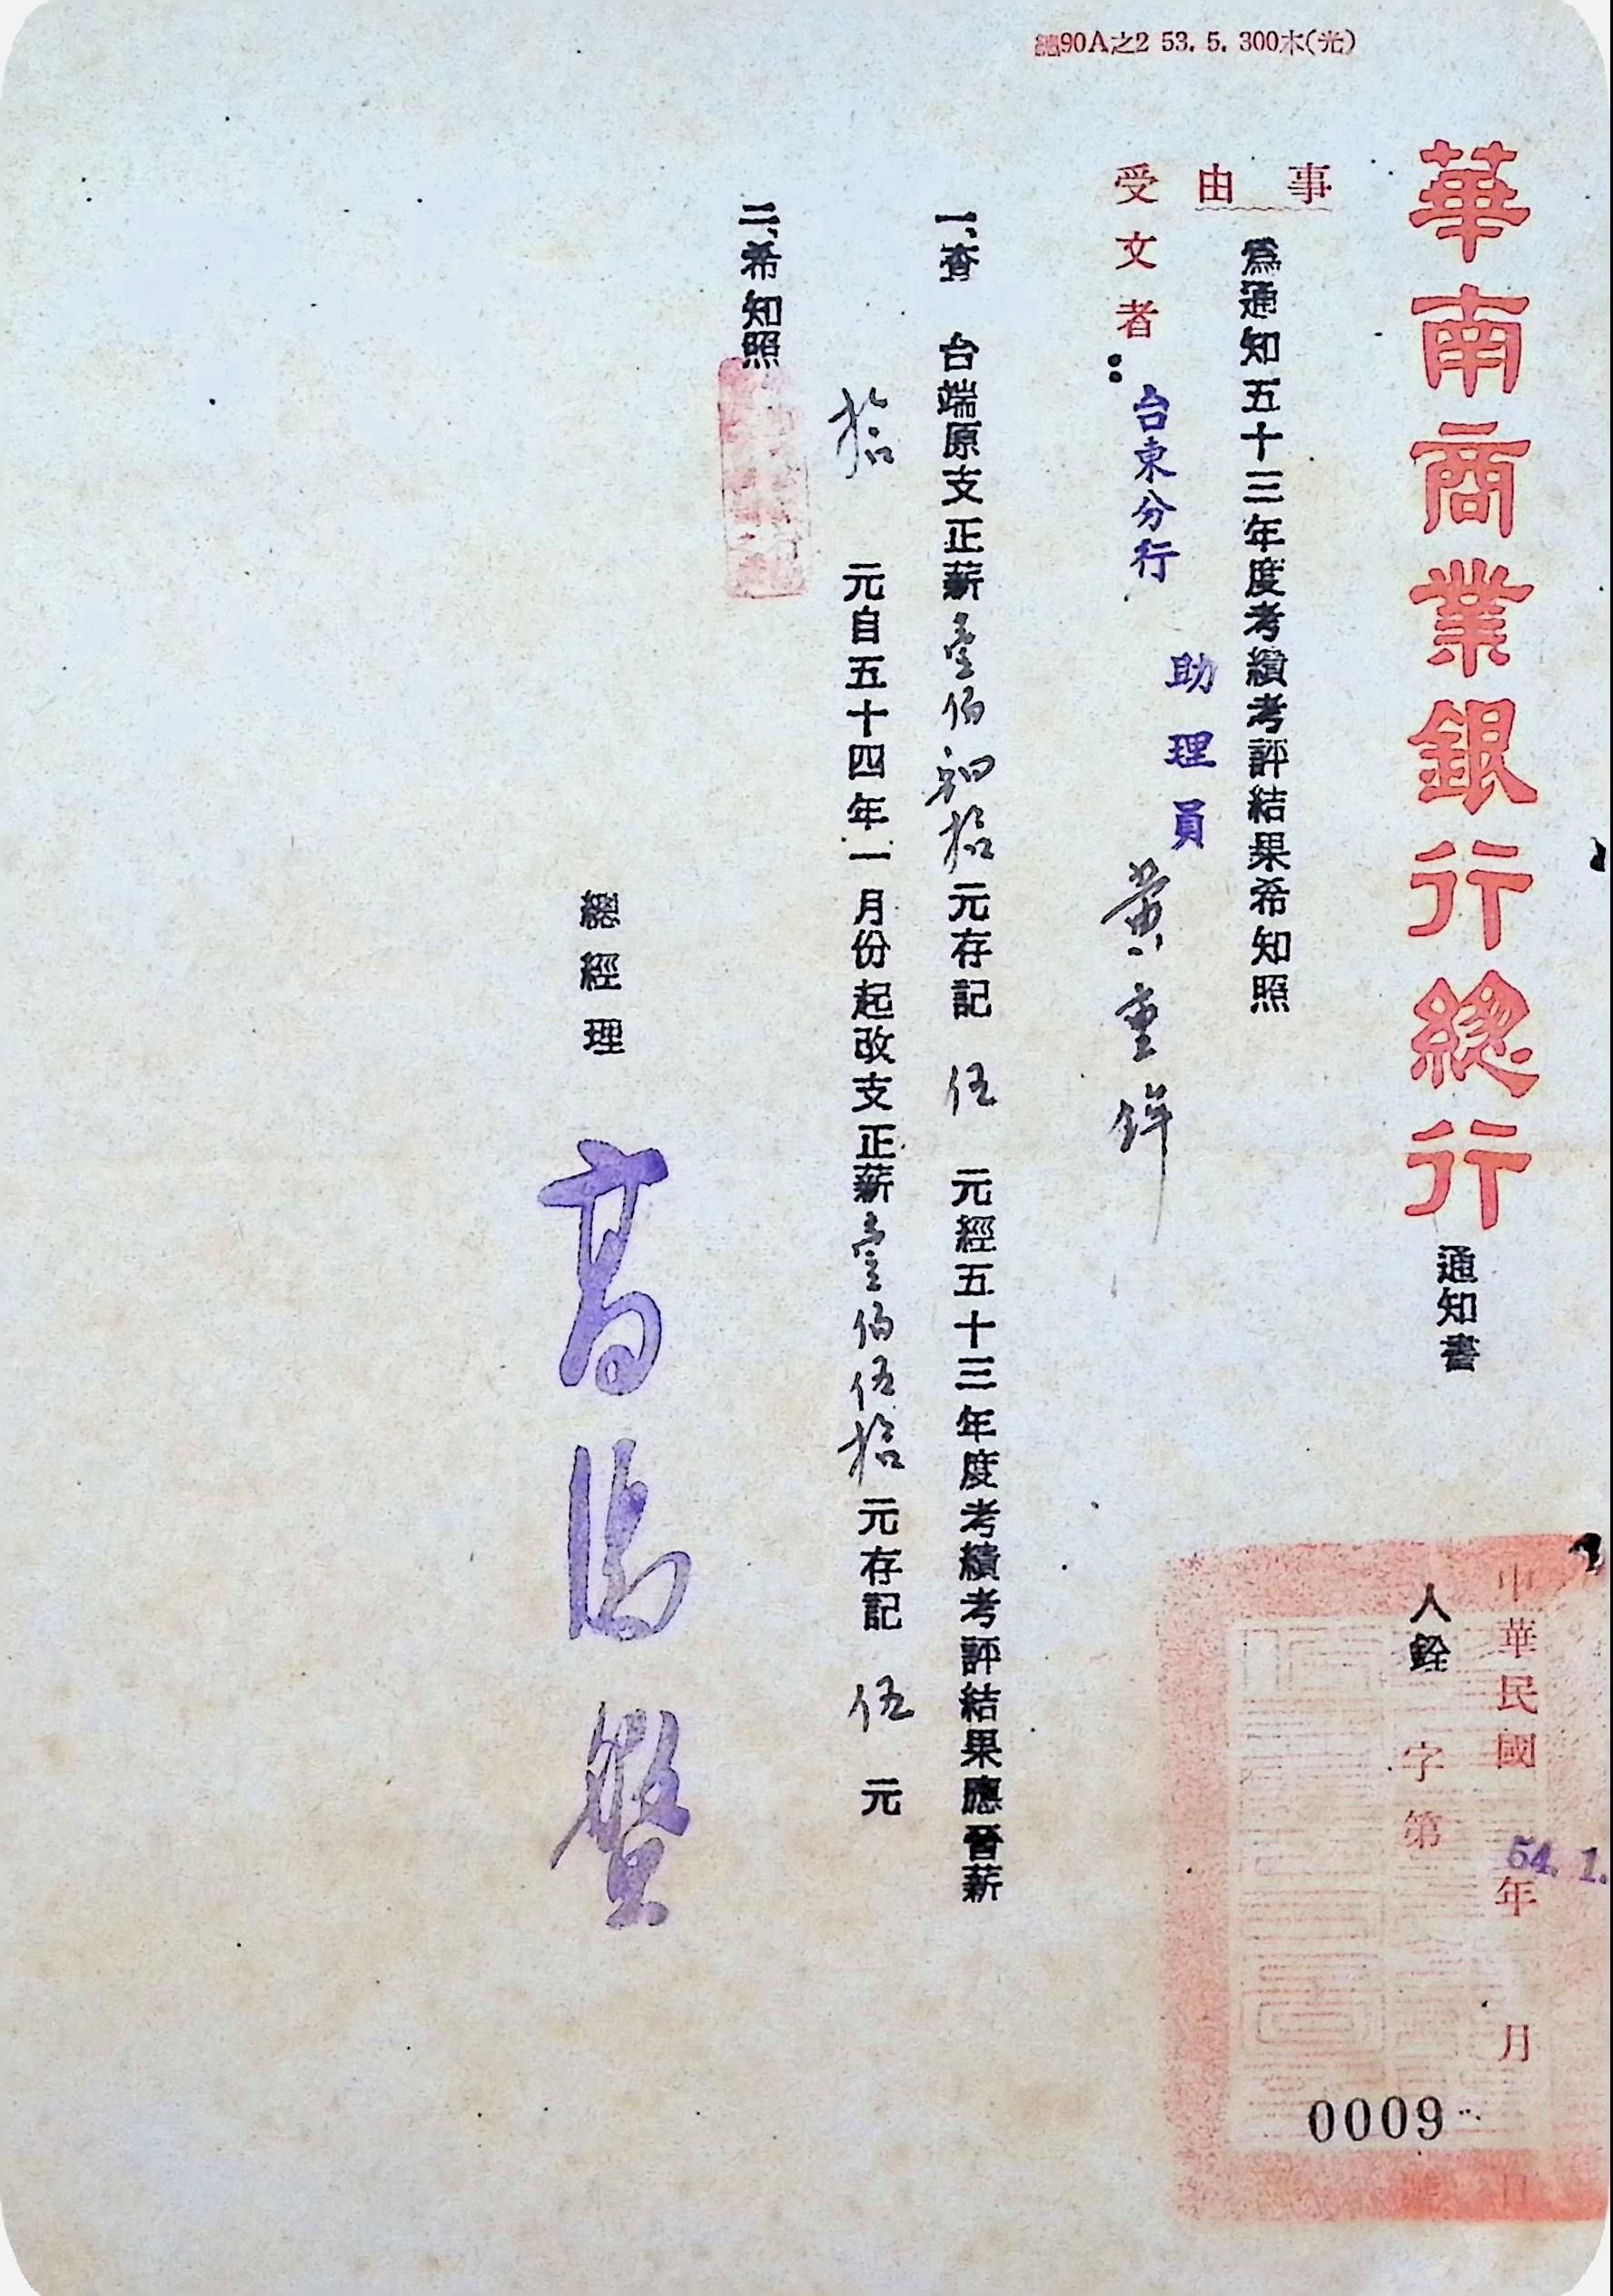 總90A之2 53. 5. 300本(光)
華南商業銀行總行通知書
中華民國 年 月 日
54. 1.
人銓 字第 號
0009
事由
為通知五十三年度考績考評結果希知照
受文者：台東分行 助理員 黃重鉾
一、查 台端原支正薪壹佰肆拾元存記 伍 元經五十三年度考績考評結果應晉薪
拾 元自五十四年一月份起改支正薪壹佰伍拾元存記 伍 元
二、希知照
總經理